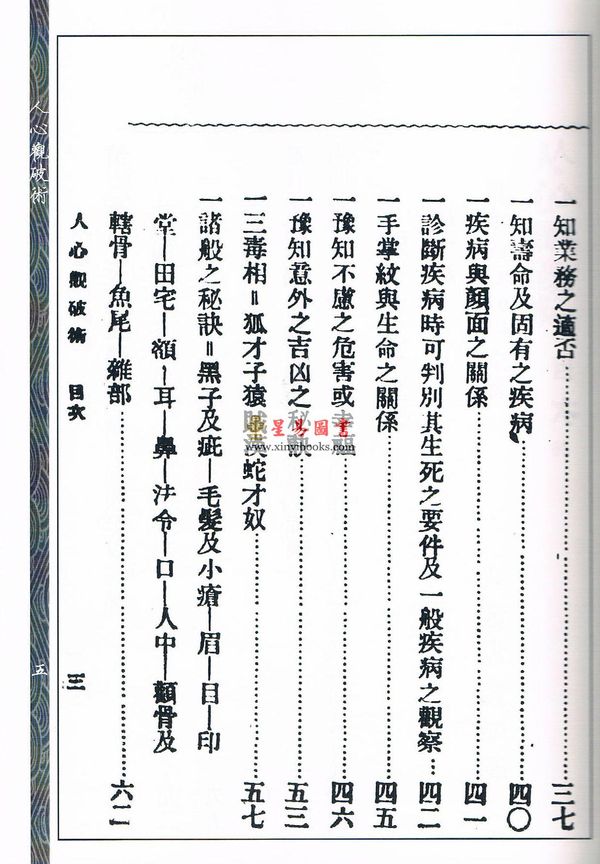 一知業務之適否……………………三七
一知壽命及固有之疾病……………………四〇
一疾病與顏面之關係……………………四一
一診斷疾病時可判別其生死之要件及一般疾病之觀察…四二
一手掌紋與生命之關係……………………四五
一豫知不慮之危害或……………………四六
一豫知意外之吉凶之秘訣……………………五三
一三毒相=狐才子猿 蛇才奴……………………五七
一諸般之秘訣=黑子及疵—毛髮及小瘡—眉—目—印
堂—田宅—額—耳—鼻—法令—口—人中—顴骨及
轄骨—魚尾—雜部……………………六二
人心觀破術 目次
三
人心觀破術
五
星易圖書
www.xinyibooks.com